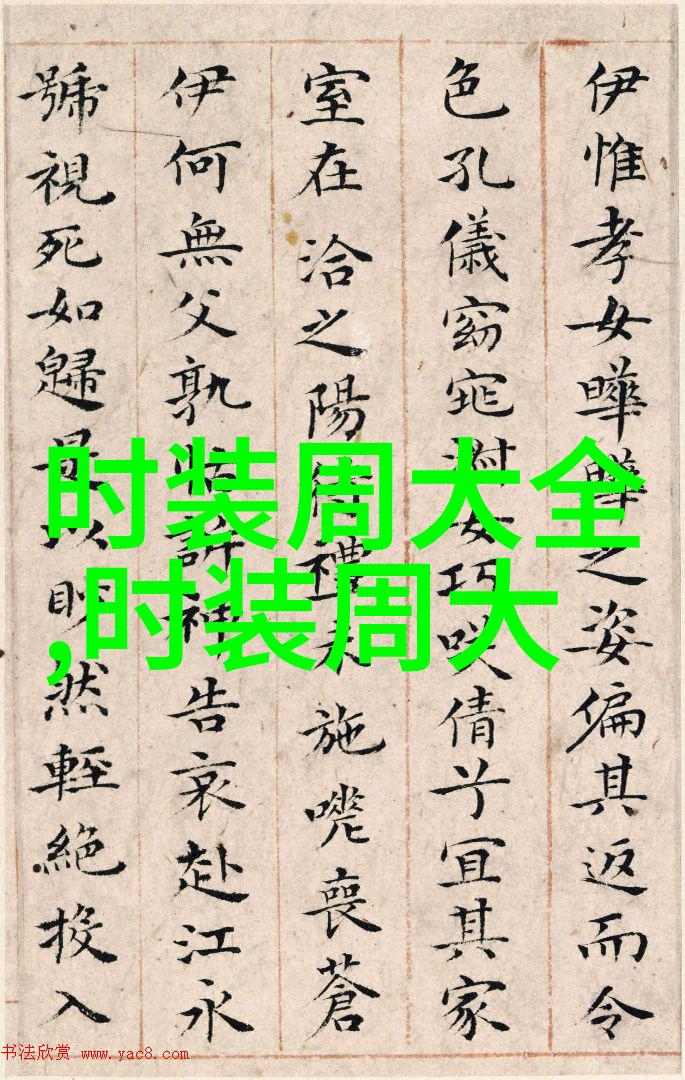 伊惟孝女曄曄之姿偏其返而令
色孔儀窈窕淑女巧咲倩兮宜其家
室在洽之陽待禮未施嗟喪蒼
伊何無父孰怙訴神告哀赴江永
號視死如歸是以眇然輕絕投入
时装周大全
,时装周大
书法欣赏 www.yac8.com